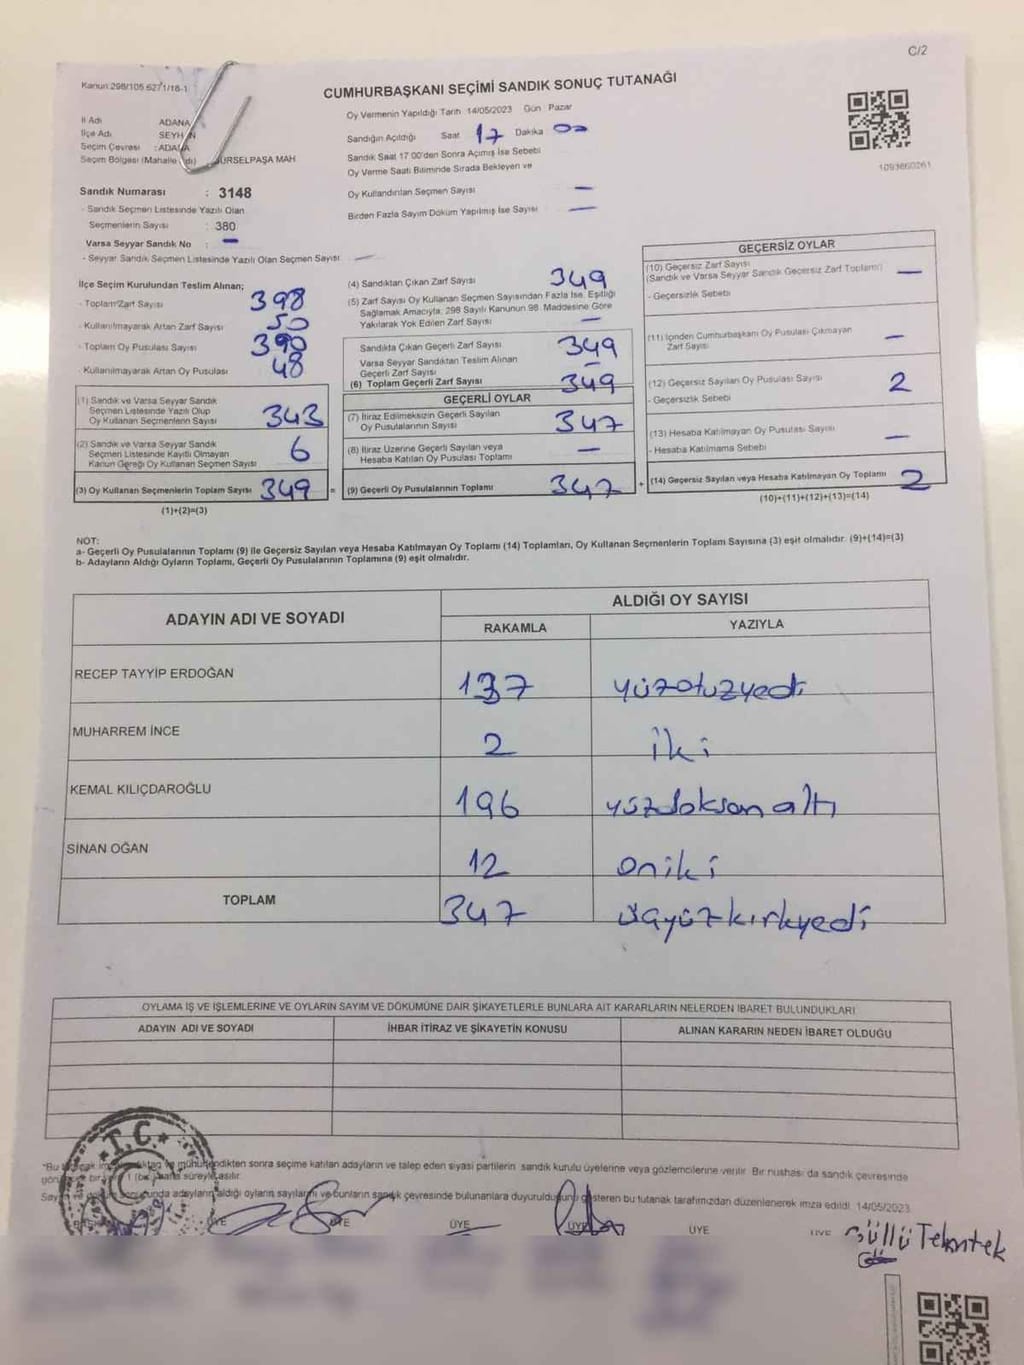 C/2
Kanun:298/105 627 1/18-1
CUMHURBAŞKANI SEÇİMİ SANDIK SONUÇ TUTANAĞI
Oy Vermenin Yapıldığı Tarih 14/05/2023 Gün Pazar
İl Adı ADANA
İlçe Adı SEYH N
Seçim Çevresi : ADANA
Seçim Bölgesi (Mahalle URSELPAŞA MAH
Sandığın Açıldığı Saat 17 Dakika 00
Sandık Saat 17 00'den Sonra Açımış İse Sebebi
Oy Verme Saati Bitiminde Sırada Bekleyen ve
Oy Kullandırılan Seçmen Sayısı —
Birden Fazla Sayım Döküm Yapılmış İse Sayısı —
1093660261
Sandık Numarası : 3148
- Sandık Seçmen Listesinde Yazılı Olan
Seçmenlerin Sayısı : 380
Varsa Seyyar Sandık No : —
- Seyyar Sandık Seçmen Listesinde Yazılı Olan Seçmen Sayısı —
İlçe Seçim Kurulundan Teslim Alınan;
- Toplam Zarf Sayısı 398
- Kullanılmayarak Artan Zarf Sayısı 50
- Toplam Oy Pusulası Sayısı 390
- Kullanılmayarak Artan Oy Pusulası 48
(1) Sandık ve Varsa Seyyar Sandık
Seçmen Listesinde Yazılı Olup
Oy Kullanan Seçmenlerin Sayısı 343
(2) Sandık ve Varsa Seyyar Sandık
Seçmen Listesinde Kayıtlı Olmayan
Kanun Gereği Oy Kullanan Seçmen Sayısı 6
(3) Oy Kullanan Seçmenlerin Toplam Sayısı 349
(1)+(2)=(3)
(4) Sandıktan Çıkan Zarf Sayısı 349
(5) Zarf Sayısı Oy Kullanan Seçmen Sayısından Fazla İse, Eşitliği
Sağlamak Amacıyla, 298 Sayılı Kanunun 98. Maddesine Göre
Yakılarak Yok Edilen Zarf Sayısı —
Sandıkta Çıkan Geçerli Zarf Sayısı 349
Varsa Seyyar Sandıktan Teslim Alınan
Geçerli Zarf Sayısı —
(6) Toplam Geçerli Zarf Sayısı 349
GEÇERLİ OYLAR
(7) İtiraz Edilmeksizin Geçerli Sayılan
Oy Pusulalarının Sayısı 347
(8) İtiraz Üzerine Geçerli Sayılan veya
Hesaba Katılan Oy Pusulası Toplamı —
= (9) Geçerli Oy Pusulalarının Toplamı 347
GEÇERSİZ OYLAR
(10) Geçersiz Zarf Sayısı
(Sandık ve Varsa Seyyar Sandık Geçersiz Zarf Toplamı) —
- Geçersizlik Sebebi
(11) İçinden Cumhurbaşkanı Oy Pusulası Çıkmayan
Zarf Sayısı —
(12) Geçersiz Sayılan Oy Pusulası Sayısı 2
- Geçersizlik Sebebi
(13) Hesaba Katılmayan Oy Pusulası Sayısı —
- Hesaba Katılmama Sebebi
+ (14) Geçersiz Sayılan veya Hesaba Katılmayan Oy Toplamı 2
(10)+(11)+(12)+(13)=(14)
NOT:
a- Geçerli Oy Pusulalarının Toplamı (9) ile Geçersiz Sayılan veya Hesaba Katılmayan Oy Toplamı (14) Toplamları, Oy Kullanan Seçmenlerin Toplam Sayısına (3) eşit olmalıdır. (9)+(14)=(3)
b- Adayların Aldığı Oyların Toplamı, Geçerli Oy Pusulalarının Toplamına (9) eşit olmalıdır.
ADAYIN ADI VE SOYADI ALDIĞI OY SAYISI
RAKAMLA YAZIYLA
RECEP TAYYİP ERDOĞAN 137 yüzotuzyedi
MUHARREM İNCE 2 iki
KEMAL KILIÇDAROĞLU 196 yüzdoksan altı
SİNAN OĞAN 12 oniki
TOPLAM 347 üçyüzkırkyedi
OYLAMA İŞ VE İŞLEMLERİNE VE OYLARIN SAYIM VE DÖKÜMÜNE DAİR ŞİKAYETLERLE BUNLARA AİT KARARLARIN NELERDEN İBARET BULUNDUKLARI
ADAYIN ADI VE SOYADI İHBAR İTİRAZ VE ŞİKAYETİN KONUSU ALINAN KARARIN NEDEN İBARET OLDUĞU
T.C.
mühürlendikten sonra seçime katılan adayların ve talep eden siyasi partilerin sandık kurulu üyelerine veya gözlemcilerine verilir. Bir nüshası da sandık çevresinde
süreyle asılır.
adayların aldığı oyların sayılarını ve bunların sandık çevresinde bulunanlara duyurulduğunu gösteren bu tutanak tarafımızdan düzenlenerek imza edildi. 14/05/2023
ÜYE ÜYE ÜYE ÜYE ÜYE ÜYE
Güllü Tekntek